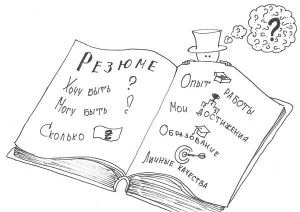 ?
Резюме
Хочу быть ?
Могу быть !
Сколько ?
Опыт работы
Мои достижения
Образование
Личные качества